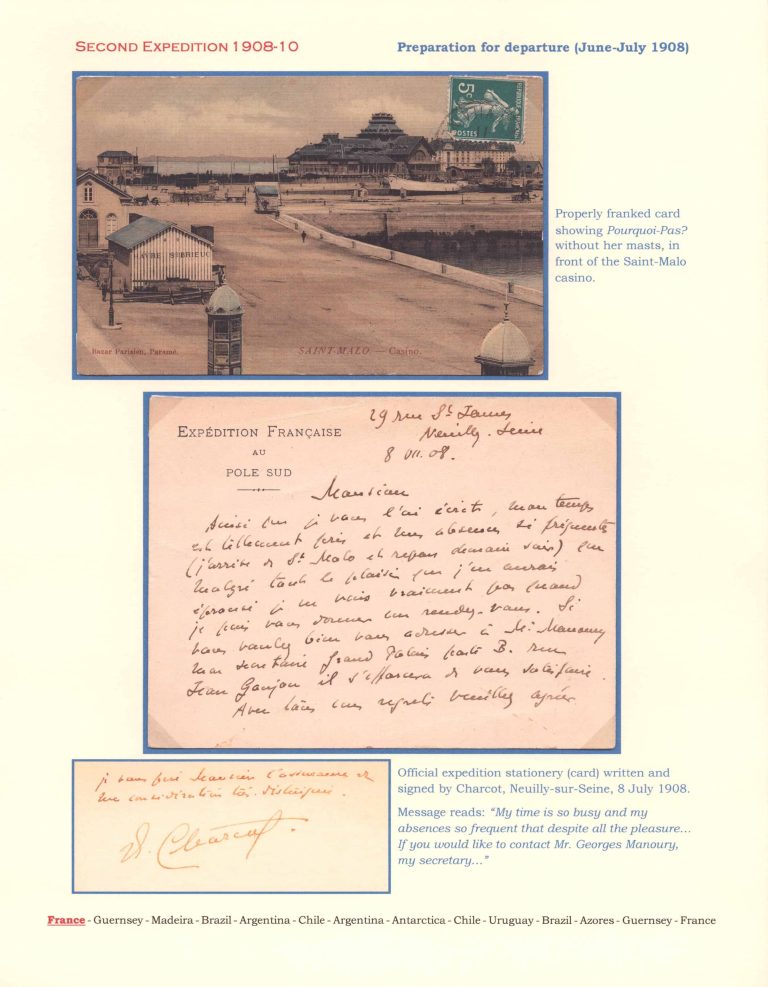 SECOND EXPEDITION 1908-10
Preparation for departure (June-July 1908)
5c
POSTES
HAVRE ST BRIEUC
Bazar Parisien, Paramé.
SAINT-MALO — Casino.
Properly franked card
showing Pourquoi-Pas?
without her masts, in
front of the Saint-Malo
casino.
29 rue St James
Neuilly. Seine
8 VII. 08.
EXPÉDITION FRANÇAISE
AU
POLE SUD
Monsieur
Ainsi que je vous l'ai écrit, mon temps
est tellement pris et mes absences si fréquentes
(j'arrive de St Malo et repars demain soir) que
malgré tout le plaisir que j'en aurais
éprouvé je ne vois vraiment pas quand
je puis vous donner un rendez-vous. Si
vous voulez bien vous adresser à Mr. Manoury
mon secrétaire Grand Palais porte B. rue
Jean Goujon il s'efforcera de vous satisfaire.
Avec tous mes regrets veuillez agréer
je vous prie Monsieur l'assurance de
ma considération très distinguée.
Charcot
Official expedition stationery (card) written and
signed by Charcot, Neuilly-sur-Seine, 8 July 1908.
Message reads: “My time is so busy and my
absences so frequent that despite all the pleasure...
If you would like to contact Mr. Georges Manoury,
my secretary...”
France - Guernsey - Madeira - Brazil - Argentina - Chile - Argentina - Antarctica - Chile - Uruguay - Brazil - Azores - Guernsey - France